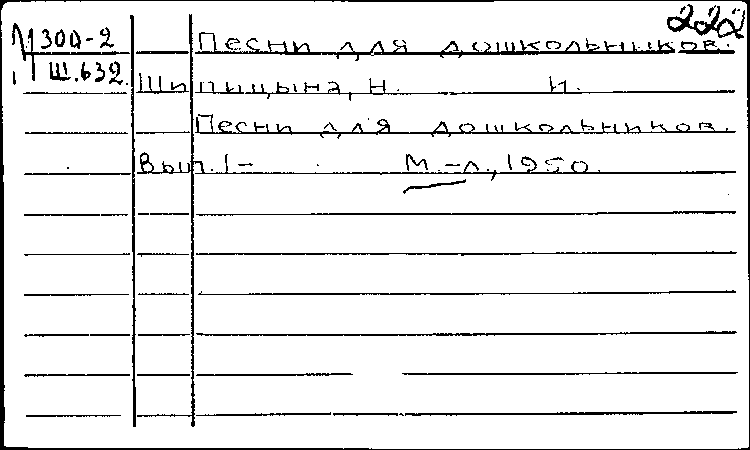 222
М 300-2 Песни для дошкольников.
Ш.632 Шипицына, Н. И.
Песни для дошкольников.
Вып. 1- М.-Л., 1950.